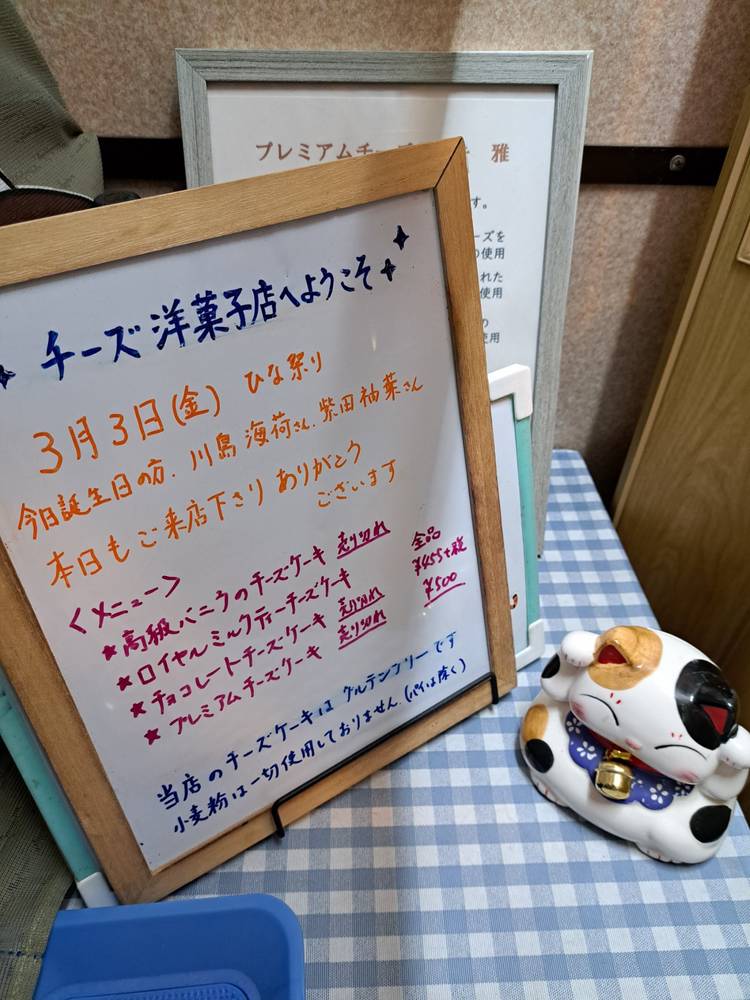 チーズ洋菓子店へようこそ
3月3日(金) ひな祭り
今日誕生日の方、川島 海荷さん、柴田 柚菜さん
本日もご来店下さり ありがとう
ございます
<メニュー>
★高級バニラのチーズケーキ 売り切れ
★ロイヤルミルクティーチーズケーキ
★チョコレートチーズケーキ 売り切れ
★プレミアムチーズケーキ 売り切れ
全品
¥455+税
¥500
当店のチーズケーキは グルテンフリーです
小麦粉は一切使用しておりません。(パイは除く)
プレミアムチーズ
雅
す。
ーズを
の使用
れた
使用
の
使用